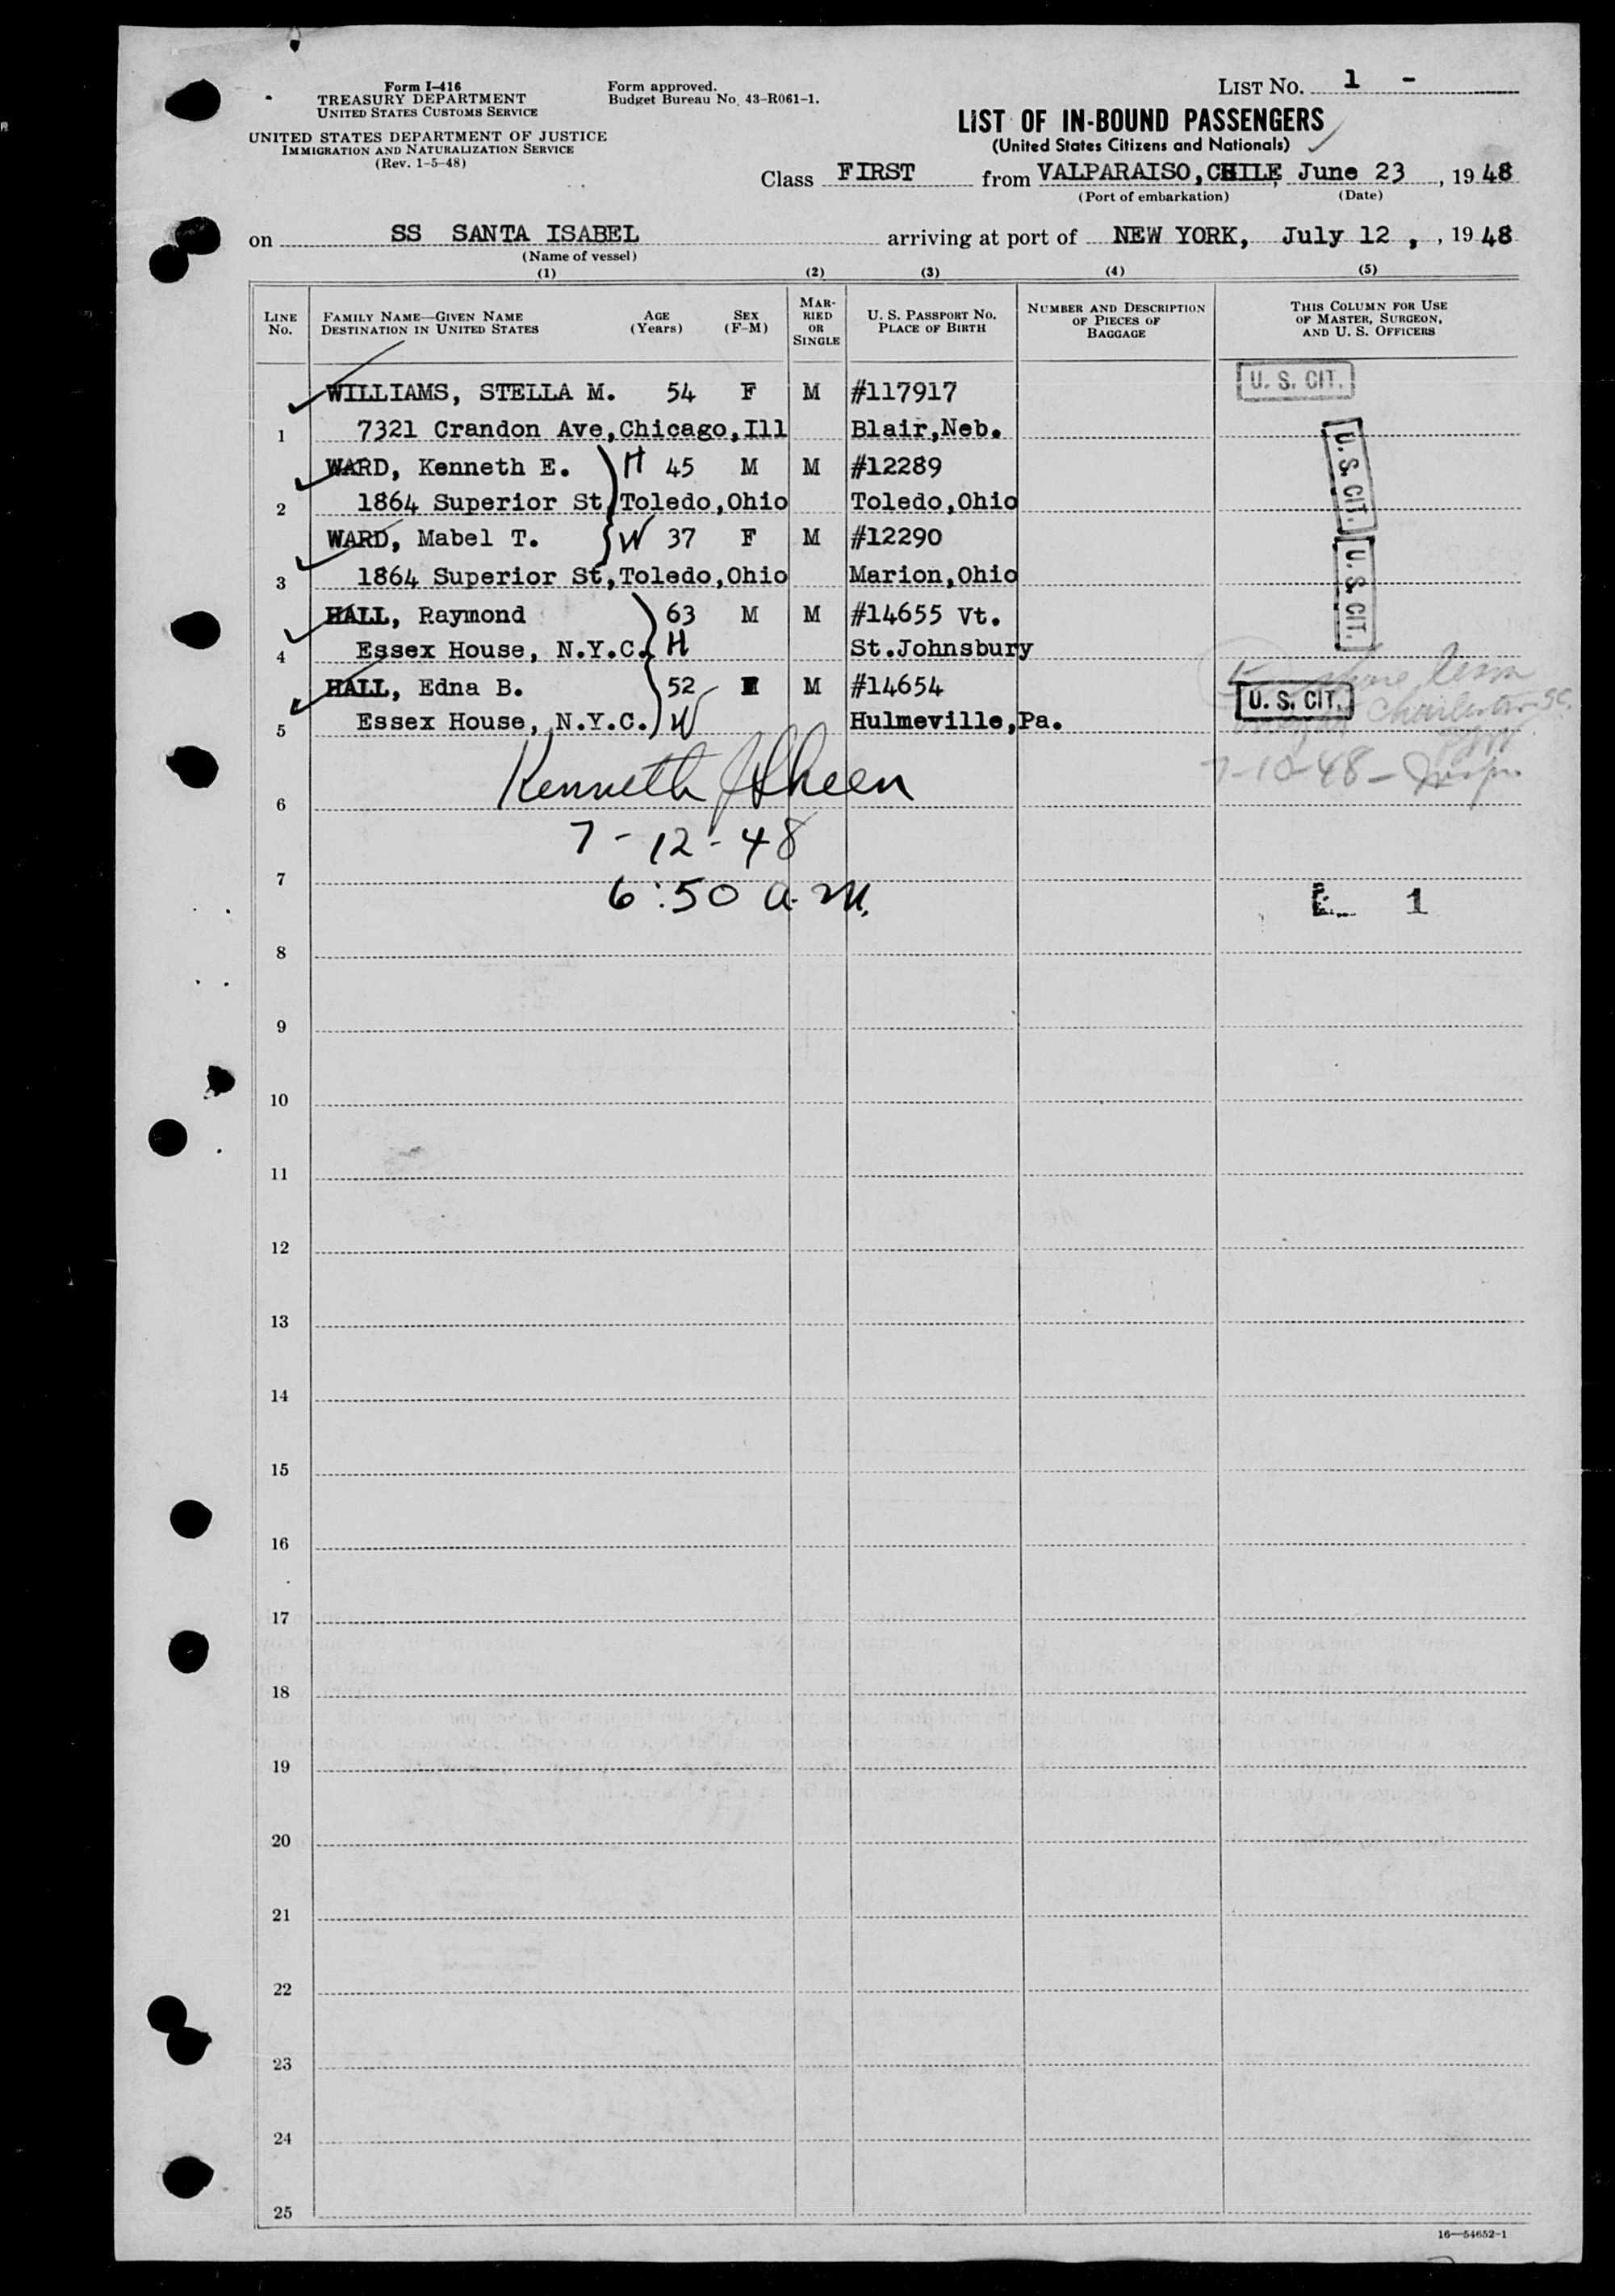 Form I-416
TREASURY DEPARTMENT
UNITED STATES CUSTOMS SERVICE
UNITED STATES DEPARTMENT OF JUSTICE
IMMIGRATION AND NATURALIZATION SERVICE
(Rev. 1-5-48)
Form approved.
Budget Bureau No. 43-R061-1.
LIST NO. 1 -
LIST OF IN-BOUND PASSENGERS
(United States Citizens and Nationals)
Class FIRST from VALPARAISO, CHILE June 23, 1948
(Port of embarkation) (Date)
on SS SANTA ISABEL arriving at port of NEW YORK, July 12, , 1948
(Name of vessel)
(1) (2) (3) (4) (5)
LINE NO. FAMILY NAME—GIVEN NAME DESTINATION IN UNITED STATES AGE (Years) SEX (F-M) MARRIED OR SINGLE U. S. PASSPORT NO. PLACE OF BIRTH NUMBER AND DESCRIPTION OF PIECES OF BAGGAGE THIS COLUMN FOR USE OF MASTER, SURGEON, AND U. S. OFFICERS
WILLIAMS, STELLA M. 54 F M #117917 U. S. CIT.
1 7321 Crandon Ave,Chicago,Ill Blair,Neb.
WARD, Kenneth E. H 45 M M #12289 U. S. CIT.
2 1864 Superior St,Toledo,Ohio Toledo,Ohio
WARD, Mabel T. W 37 F M #12290 U. S. CIT.
3 1864 Superior St,Toledo,Ohio Marion,Ohio
HALL, Raymond 63 M M #14655 Vt.
4 Essex House, N.Y.C. H St.Johnsbury
HALL, Edna B. 52 M #14654 U. S. CIT.
5 Essex House, N.Y.C. W Hulmeville,Pa. Charleston SC.
7-10-48 -
6 Kenneth
7-12-48
7 6:50 a.m. 1
8
9
10
11
12
13
14
15
16
17
18
19
20
21
22
23
24
25
16—54652-1